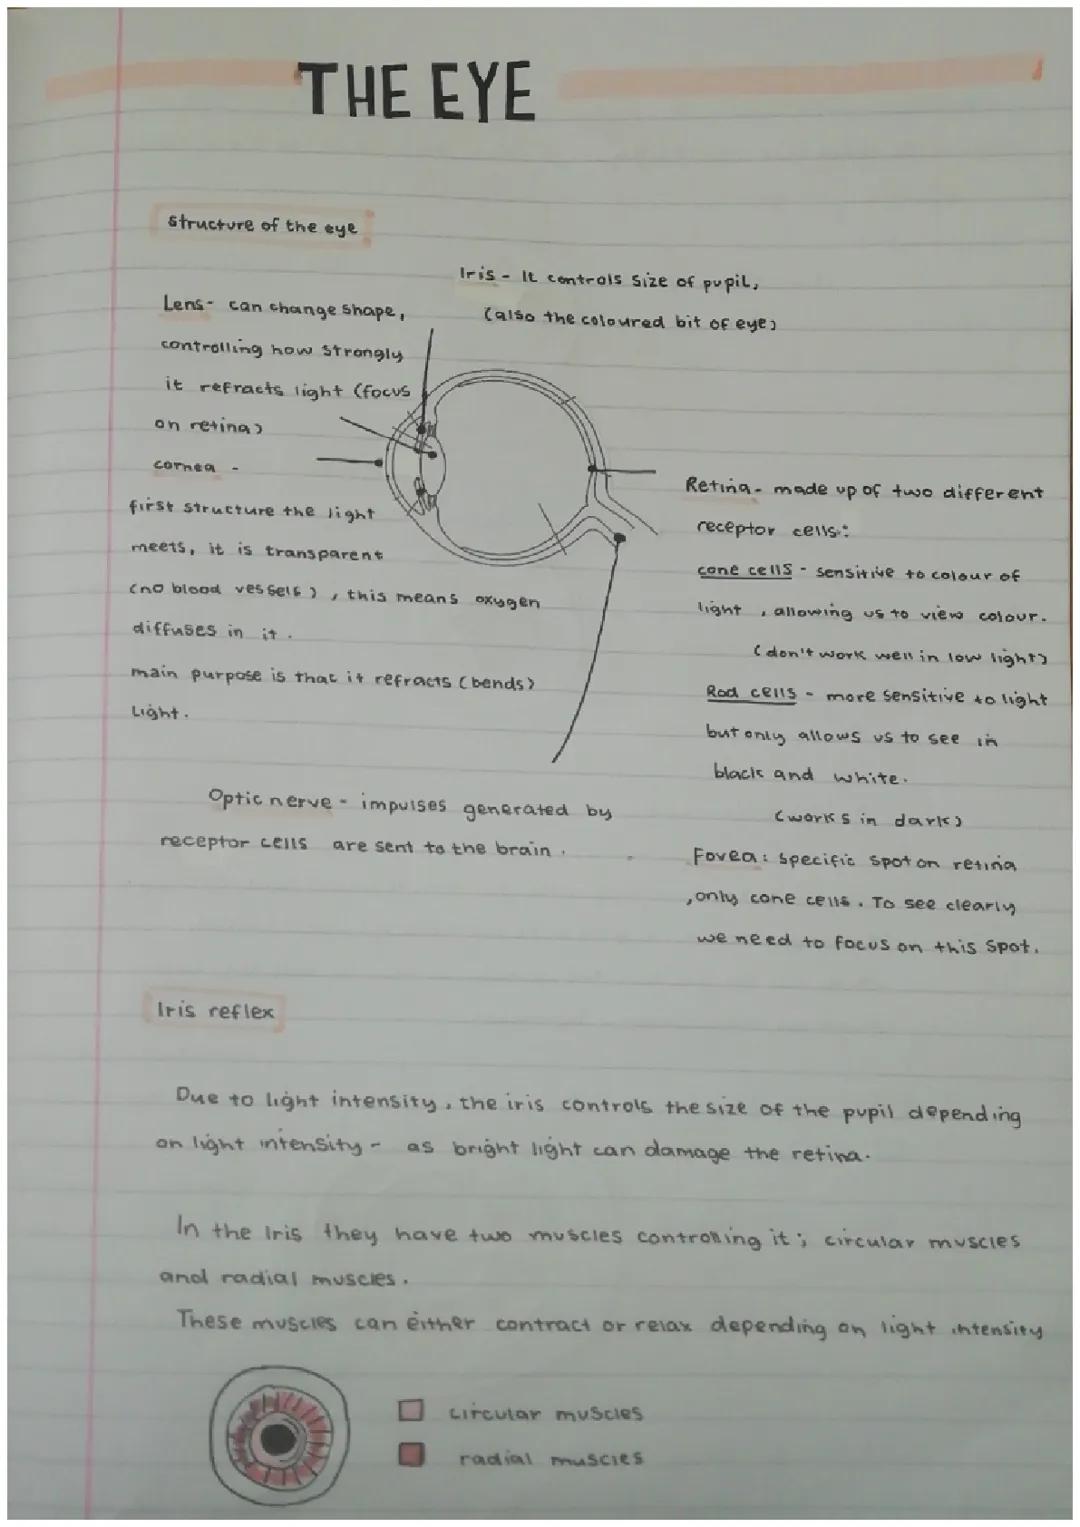 THE EYE
structure of the eye
Iris - It controls size of pupil,
(also the coloured bit of eye)
Lens - can change shape,
controlling how strongly
it refracts light (focus
on retina)
cornea -
first structure the light
meets, it is transparent
(no blood vessels), this means oxygen
diffuses in it.
main purpose is that it refracts (bends)
Light.
Optic nerve - impulses generated by
receptor cells are sent to the brain.
Retina - made up of two different
receptor cells:
cone cells - sensitive to colour of
light, allowing us to view colour.
(don't work well in low light)
Rod cells - more sensitive to light
but only allows us to see in
black and white.
(works in dark)
Fovea: specific spot on retina
,only cone cells. To see clearly
we need to focus on this spot.
Iris reflex
Due to light intensity, the iris controls the size of the pupil depending
on light intensity - as bright light can damage the retina.
In the Iris they have two muscles controlling it; circular muscles
and radial muscles.
These muscles can either contract or relax depending on light intensity
circular muscles
radial muscles